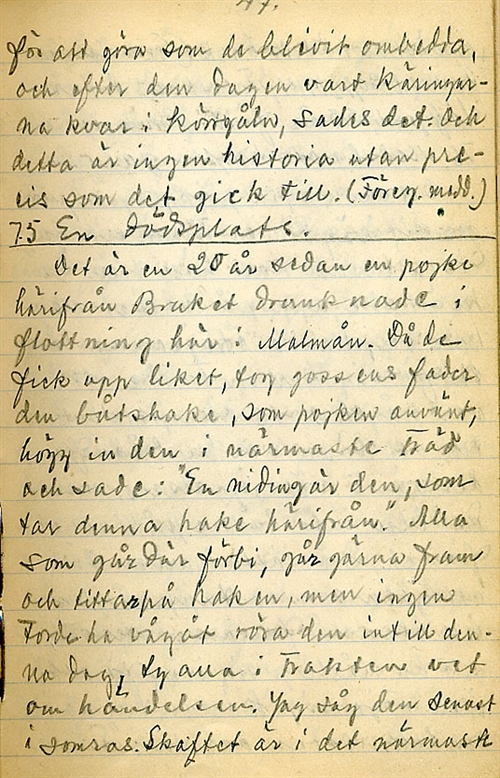 47.
för att göra som de blivit ombedda,
och efter den dagen vart käringar-
na kvar i körrgåln, sades det. Och
detta är ingen historia utan pre-
cis som det gick till. (Föreg. medd.)
75 En dödsplats.
Det är en 20 år sedan en pojke
härifrån Bruket drunknade i
flottning här i Malmån. Då de
fick upp liket, tog gossens fader
den båtshake, som pojken använt,
högg in den i närmaste träd
och sade: "En niding är den, som
tar denna hake härifrån." Alla
som går där förbi, går gärna fram
och tittar på haken, men ingen
torde ha vågat röra den intill den-
na dag, ty alla i trakten vet
om händelsen. Jag såg den senast
i somras. Skaftet är i det närmaste